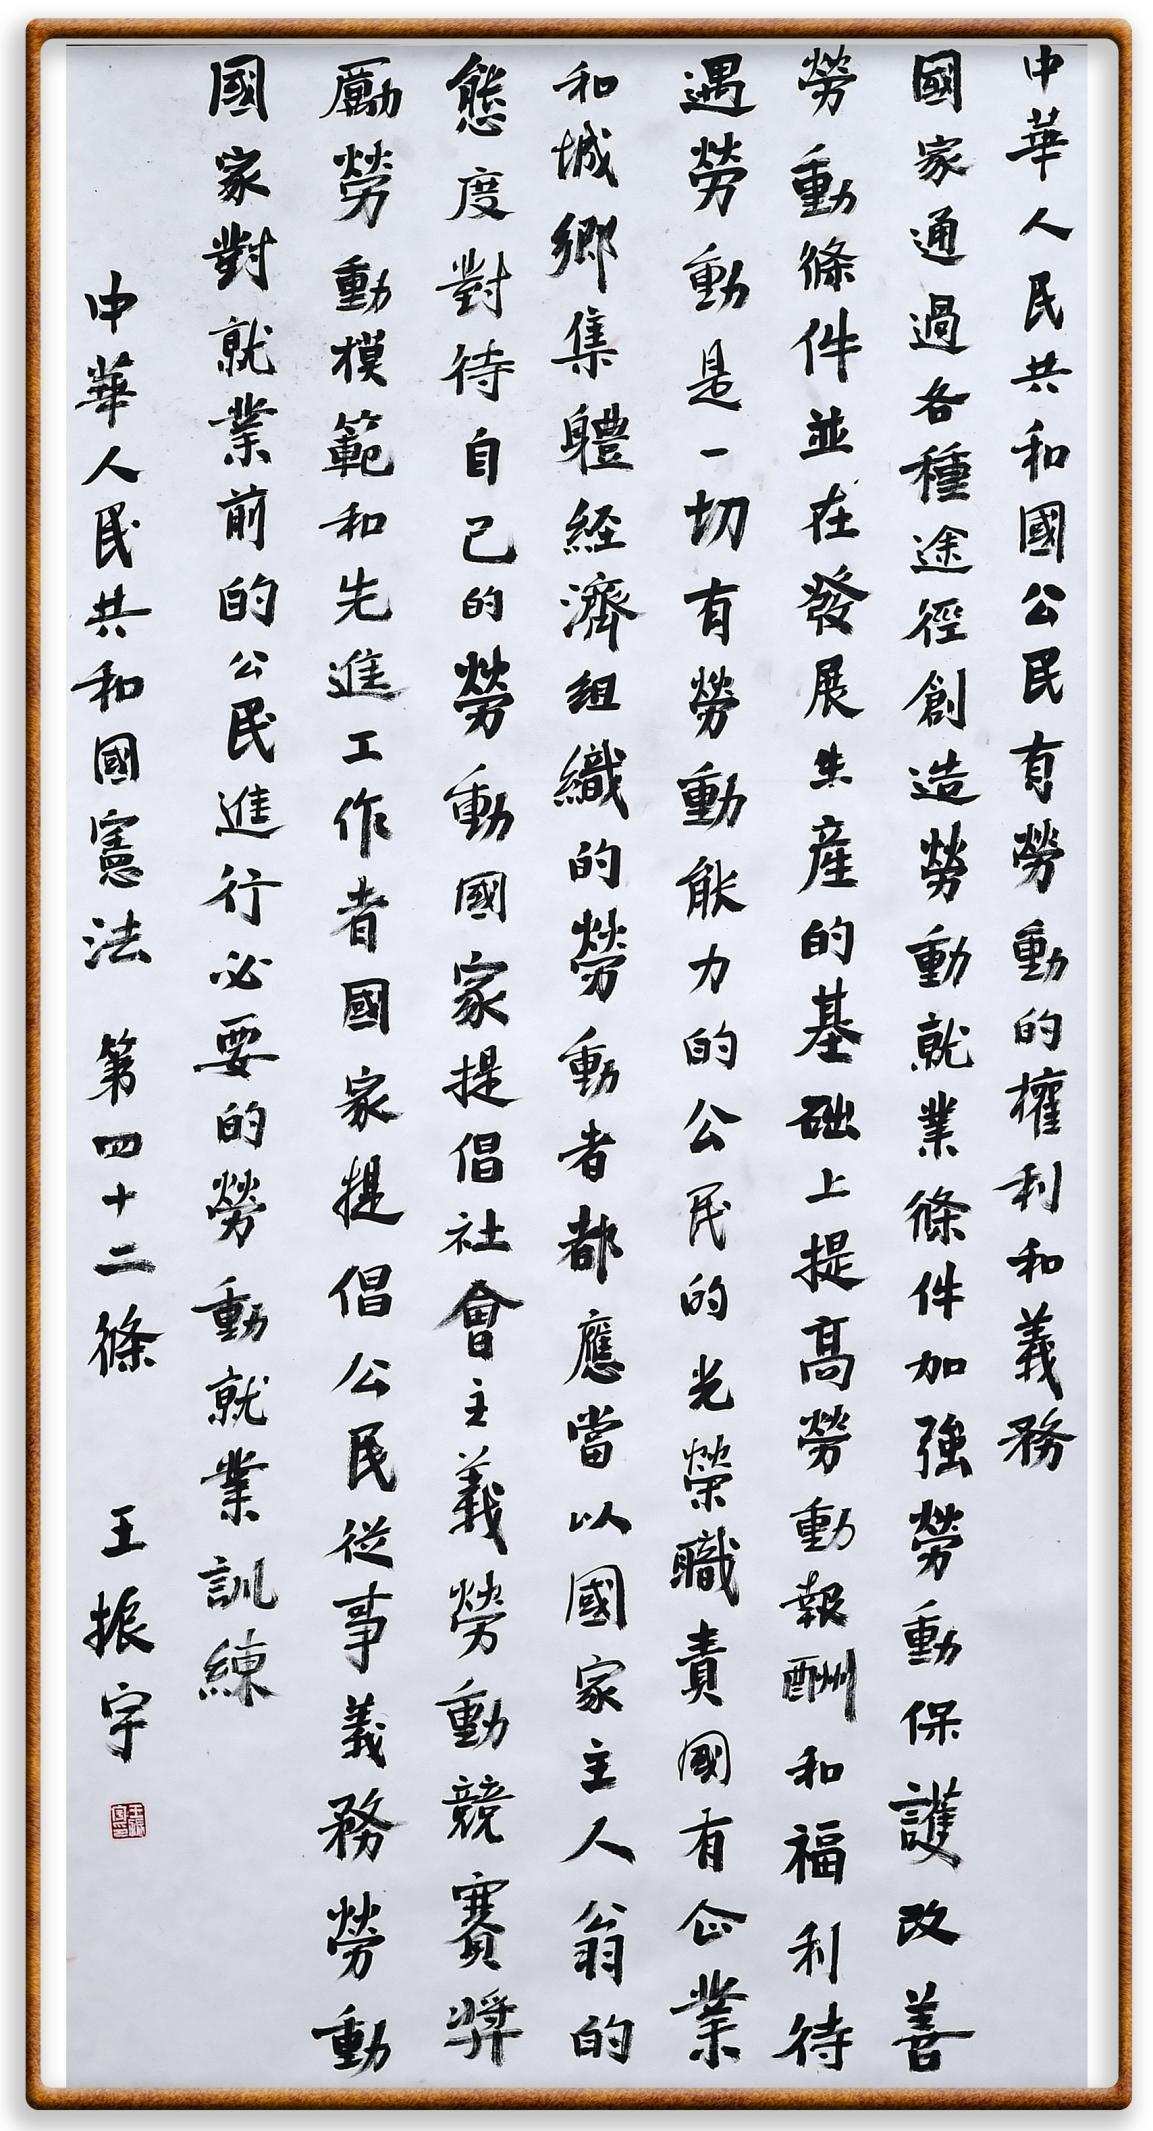 中華人民共和國公民有勞動的權利和義務
國家通過各種途徑創造勞動就業條件加強勞動保護改善
勞動條件並在發展生產的基础上提高勞動報酬和福利待
遇勞動是一切有勞動能力的公民的光榮職責國有企業
和城鄉集體經濟組織的勞動者都應當以國家主人翁的
態度對待自己的勞動國家提倡社會主義勞動競賽獎
勵勞動模範和先進工作者國家提倡公民從事義務勞動
國家對就業前的公民進行必要的勞動就業訓練
中華人民共和國憲法 第四十二條 王振宇